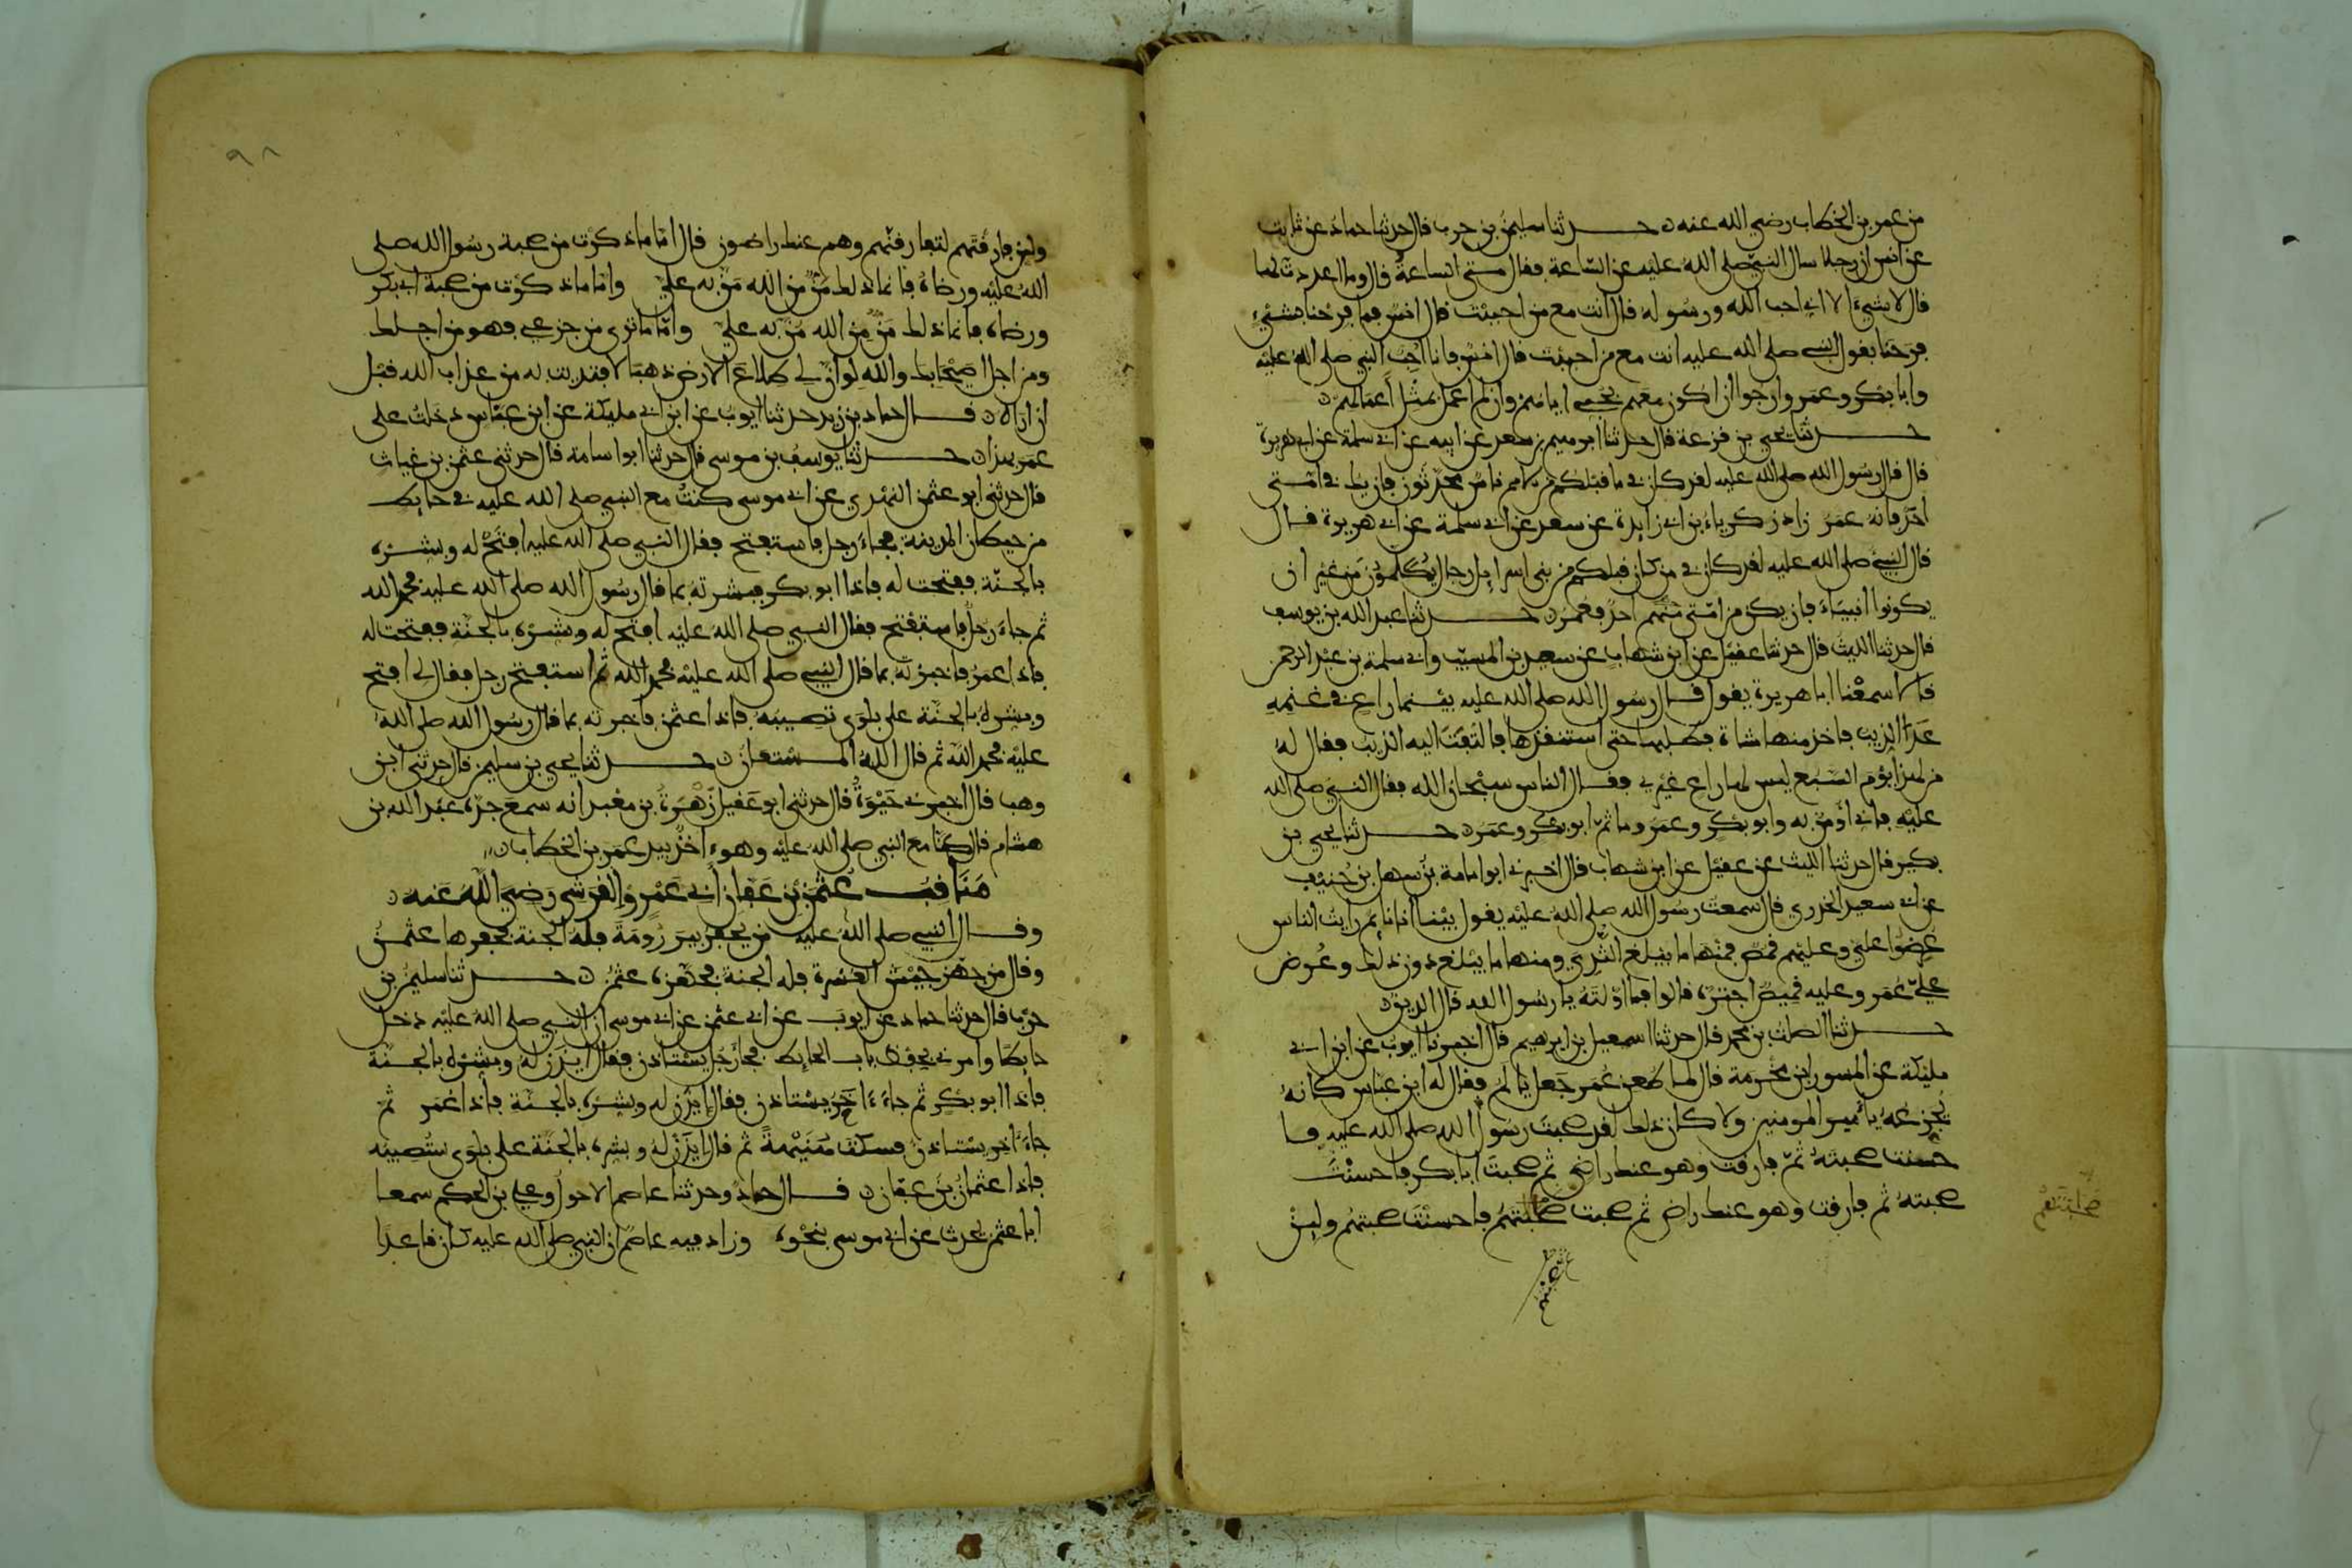 من عمر بن الخطاب رضي الله عنه ن حدثنا سليمن بن حرب قال حدثنا حماد عن ثابت
عن انس ان رجلا سال النبي صلى الله عليه عن الساعة فقال متى الساعة قال وما اعددت لها
قال لا شيء الا اني احب الله ورسوله قال انت مع من احببت قال انس فما فرحنا بشيء
فرحنا بقول النبي صلى الله عليه انت مع من احببت قال انس فانا احب النبي صلى الله عليه
وابا بكر وعمر وارجوا ان اكون معهم بحبي اياهم وان لم اعمل بمثل اعمالهم ن
حدثنا يحيى بن قزعة قال حدثنا ابرهيم بن سعد عن ابيه عن ابي سلمة عن ابي هريرة
قال قال رسول الله صلى الله عليه لقد كان في ما قبلكم من الامم ناس محدثون فان يك في امتي
احد فانه عمر زاد زكرياء بن ابي زايدة عن سعد عن ابي سلمة عن ابي هريرة قال
قال النبي صلى الله عليه لقد كان في من كان قبلكم من بني اسرايل رجال يكلمون من غير ان
يكونوا انبياء فان يكن من امتي منهم احد فعمر ن حدثنا عبد الله بن يوسف
قال حدثنا الليث قال حدثنا عقيل عن ابن شهاب عن سعيد بن المسيب وابي سلمة بن عبد الرحمن
قالا سمعنا ابا هريرة يقول قال رسول الله صلى الله عليه بينما راع في غنمه
عدا الذيب فاخذ منها شاة فطلبها حتى استنقذها فالتفت اليه الذيب فقال له
من لها يوم السبع ليس لها راع غيري فقال الناس سبحان الله فقال النبي صلى الله
عليه فاني اومن به وابو بكر وعمر وما ثم ابو بكر وعمر ن حدثنا يحيى بن
بكير قال حدثنا الليث عن عقيل عن ابن شهاب قال اخبرني ابو امامة بن سهل بن حنيف
عن ابي سعيد الخدري قال سمعت رسول الله صلى الله عليه يقول بينا انا نايم رايت الناس
عرضوا علي وعليهم قمص فمنها ما يبلغ الثدي ومنها ما يبلغ دون ذلك وعرض
علي عمر وعليه قميص اجتره قالوا فما اولته يا رسول الله قال الدين ن
حدثنا الصلت بن محمد قال حدثنا اسمعيل بن ابرهيم قال اخبرنا ايوب عن ابن ابي
مليكة عن المسور بن مخرمة قال لما طعن عمر جعل يالم فقال له ابن عباس كانه
يجزعه يا امير المومنين ولا كان ذلك لقد صحبت رسول الله صلى الله عليه فا
حسنت صحبته ثم فارقت وهو عنك راض ثم صحبت ابا بكر فاحسنت
صحبته ثم فارقت وهو عنك راض ثم صحبت صحبتهم فاحسنت صحبتهم ولين
ولين فارقتهم لتفارقنهم وهم عنك راضون قال اما ما ذكرت من صحبة رسول الله صلى
الله عليه ورضاه فانما ذلك من من الله من به علي واما ما ذكرت من صحبة ابي بكر
ورضاه فانما ذلك من من الله من به علي واما ما ترى من جزعي فهو من اجلك
ومن اجل اصحابك والله لو ان لي طلاع الارض ذهبا لافتديت به من عذاب الله قبل
ان اراه ن قال حماد بن زيد حدثنا ايوب عن ابن ابي مليكة عن ابن عباس دخلت على
عمر بهذا ن حدثنا يوسف بن موسى قال حدثنا ابو اسامة قال حدثني عثمن بن غياث
قال حدثني ابو عثمن النهدي عن ابي موسى كنت مع النبي صلى الله عليه في حايط
من حيطان المدينة فجاء رجل فاستفتح فقال النبي صلى الله عليه افتح له وبشره
بالجنة ففتحت له فاذا ابو بكر فبشرته بما قال رسول الله صلى الله عليه فحمد الله
ثم جاء رجل فاستفتح فقال النبي صلى الله عليه افتح له وبشره بالجنة ففتحت له
فاذا عمر فاخبرته بما قال النبي صلى الله عليه فحمد الله ثم استفتح رجل فقال لي افتح
وبشره بالجنة على بلوى تصيبه فاذا عثمن فاخبرته بما قال رسول الله صلى الله
عليه فحمد الله ثم قال الله المستعان ن حدثنا يحيى بن سليمن قال حدثني ابن
وهب قال اخبرني حيوة قال حدثني ابو عقيل زهرة بن معبد انه سمع جده عبد الله بن
هشام قال كنا مع النبي صلى الله عليه وهو اخذ بيد عمر بن الخطاب ن
مناقب عثمن بن عفان ابي عمرو القرشي رضي الله عنه ن
وقال النبي صلى الله عليه من يحفر بير رومة فله الجنة فحفرها عثمن
وقال من جهز جيش العسرة فله الجنة فجهزه عثمن ن حدثنا سليمن بن
حرب قال حدثنا حماد عن ايوب عن ابي عثمن عن ابي موسى ان النبي صلى الله عليه دخل
حايطا وامرني بحفظ باب الحايط فجاء رجل يستاذن فقال ايذن له وبشره بالجنة
فاذا ابو بكر ثم جاء اخر يستاذن فقال ايذن له وبشره بالجنة فاذا عمر ثم
جاء اخر يستاذن فسكت هنيهة ثم قال ايذن له وبشره بالجنة على بلوى ستصيبه
فاذا عثمان بن عفان ن قال حماد وحدثنا عاصم الاحول وعلي بن الحكم سمعا
ابا عثمن يحدث عن ابي موسى بنحوه وزاد فيه عاصم ان النبي صلى الله عليه كان قاعدا